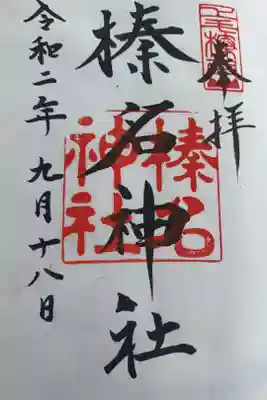 奉拝
榛名神社
榛名
神社
令和二年 九月十八日